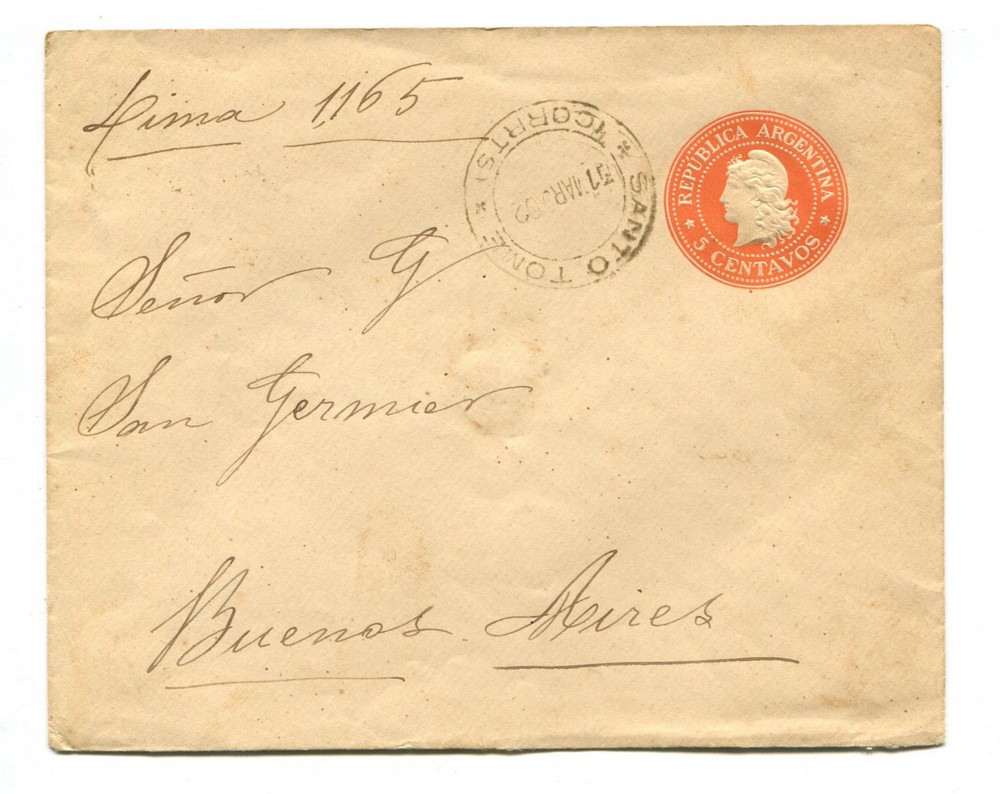 Lima 1165
* SANTO TOMÉ * (CORRTS)
31 MAR 902
REPÚBLICA ARGENTINA
* 5 CENTAVOS *
Señor G.
San Germier
Buenos Aires